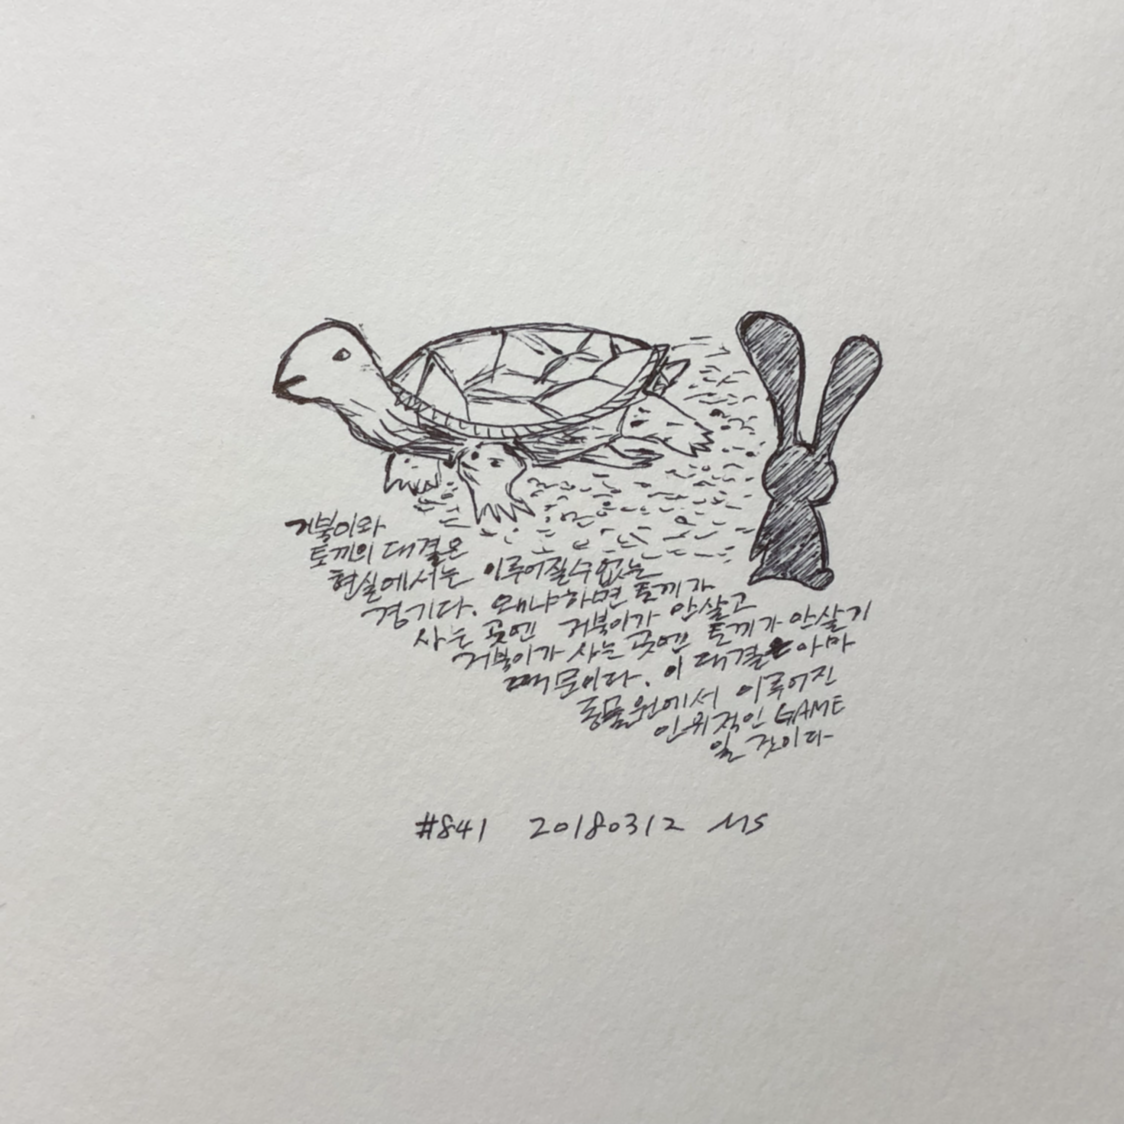 거북이와
토끼의 대결은
현실에서는 이루어질수없는
경기다. 왜냐하면 토끼가
사는 곳엔 거북이가 안살고
거북이가 사는 곳엔 토끼가 안살기
때문이다. 이 대결은 아마
동물원에서 이루어진
인위적인 GAME
일 것이다
#841 20180312 MS